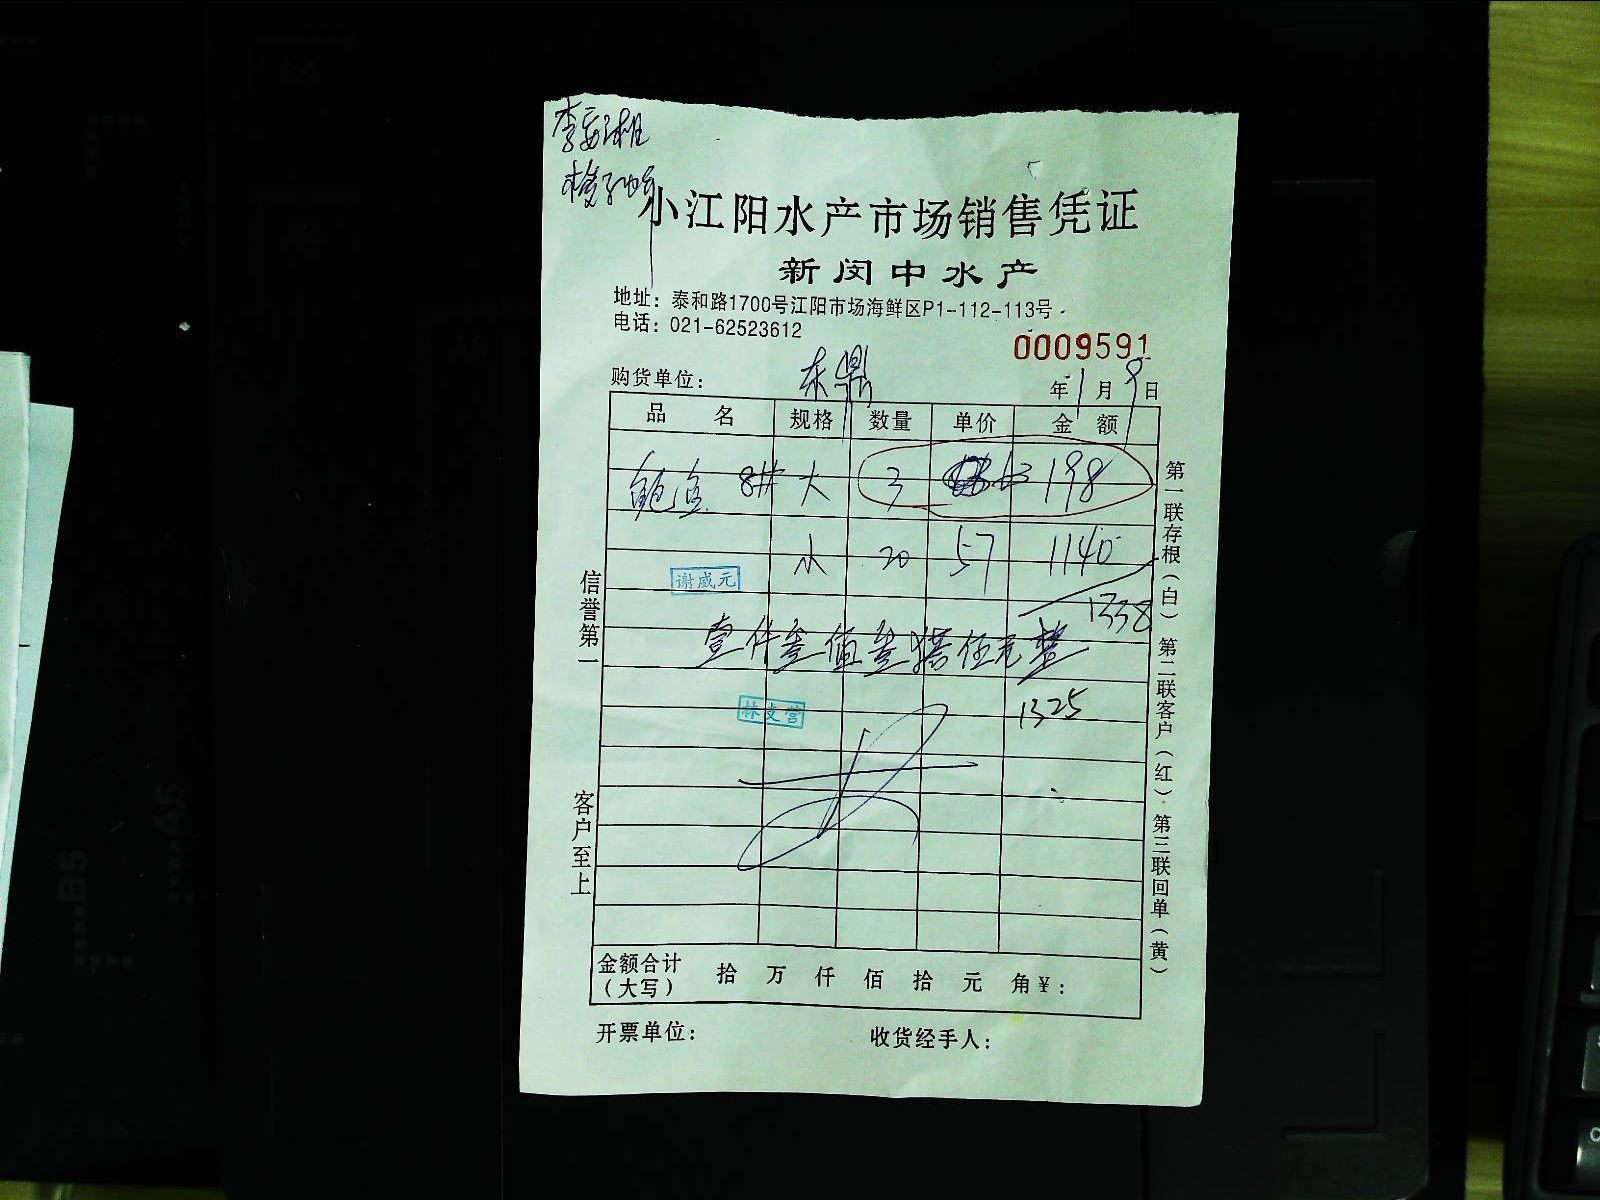 小江阳水产市场销售凭证
新闵中水产
地址：泰和路1700号江阳市场海鲜区P1-112-113号
电话：021-62523612
0009591
购货单位： 东鼎 年1月9日
品名 规格 数量 单价 金额
鲍鱼 8# 大 3 63 198
小 20 57 1140
谢威元
1338
壹仟叁佰叁拾伍元整
1325
林文营
金额合计（大写） 拾 万 仟 佰 拾 元 角 ¥：
开票单位： 收货经手人：
信誉第一 客户至上
第一联存根（白） 第二联客户（红） 第三联回单（黄）